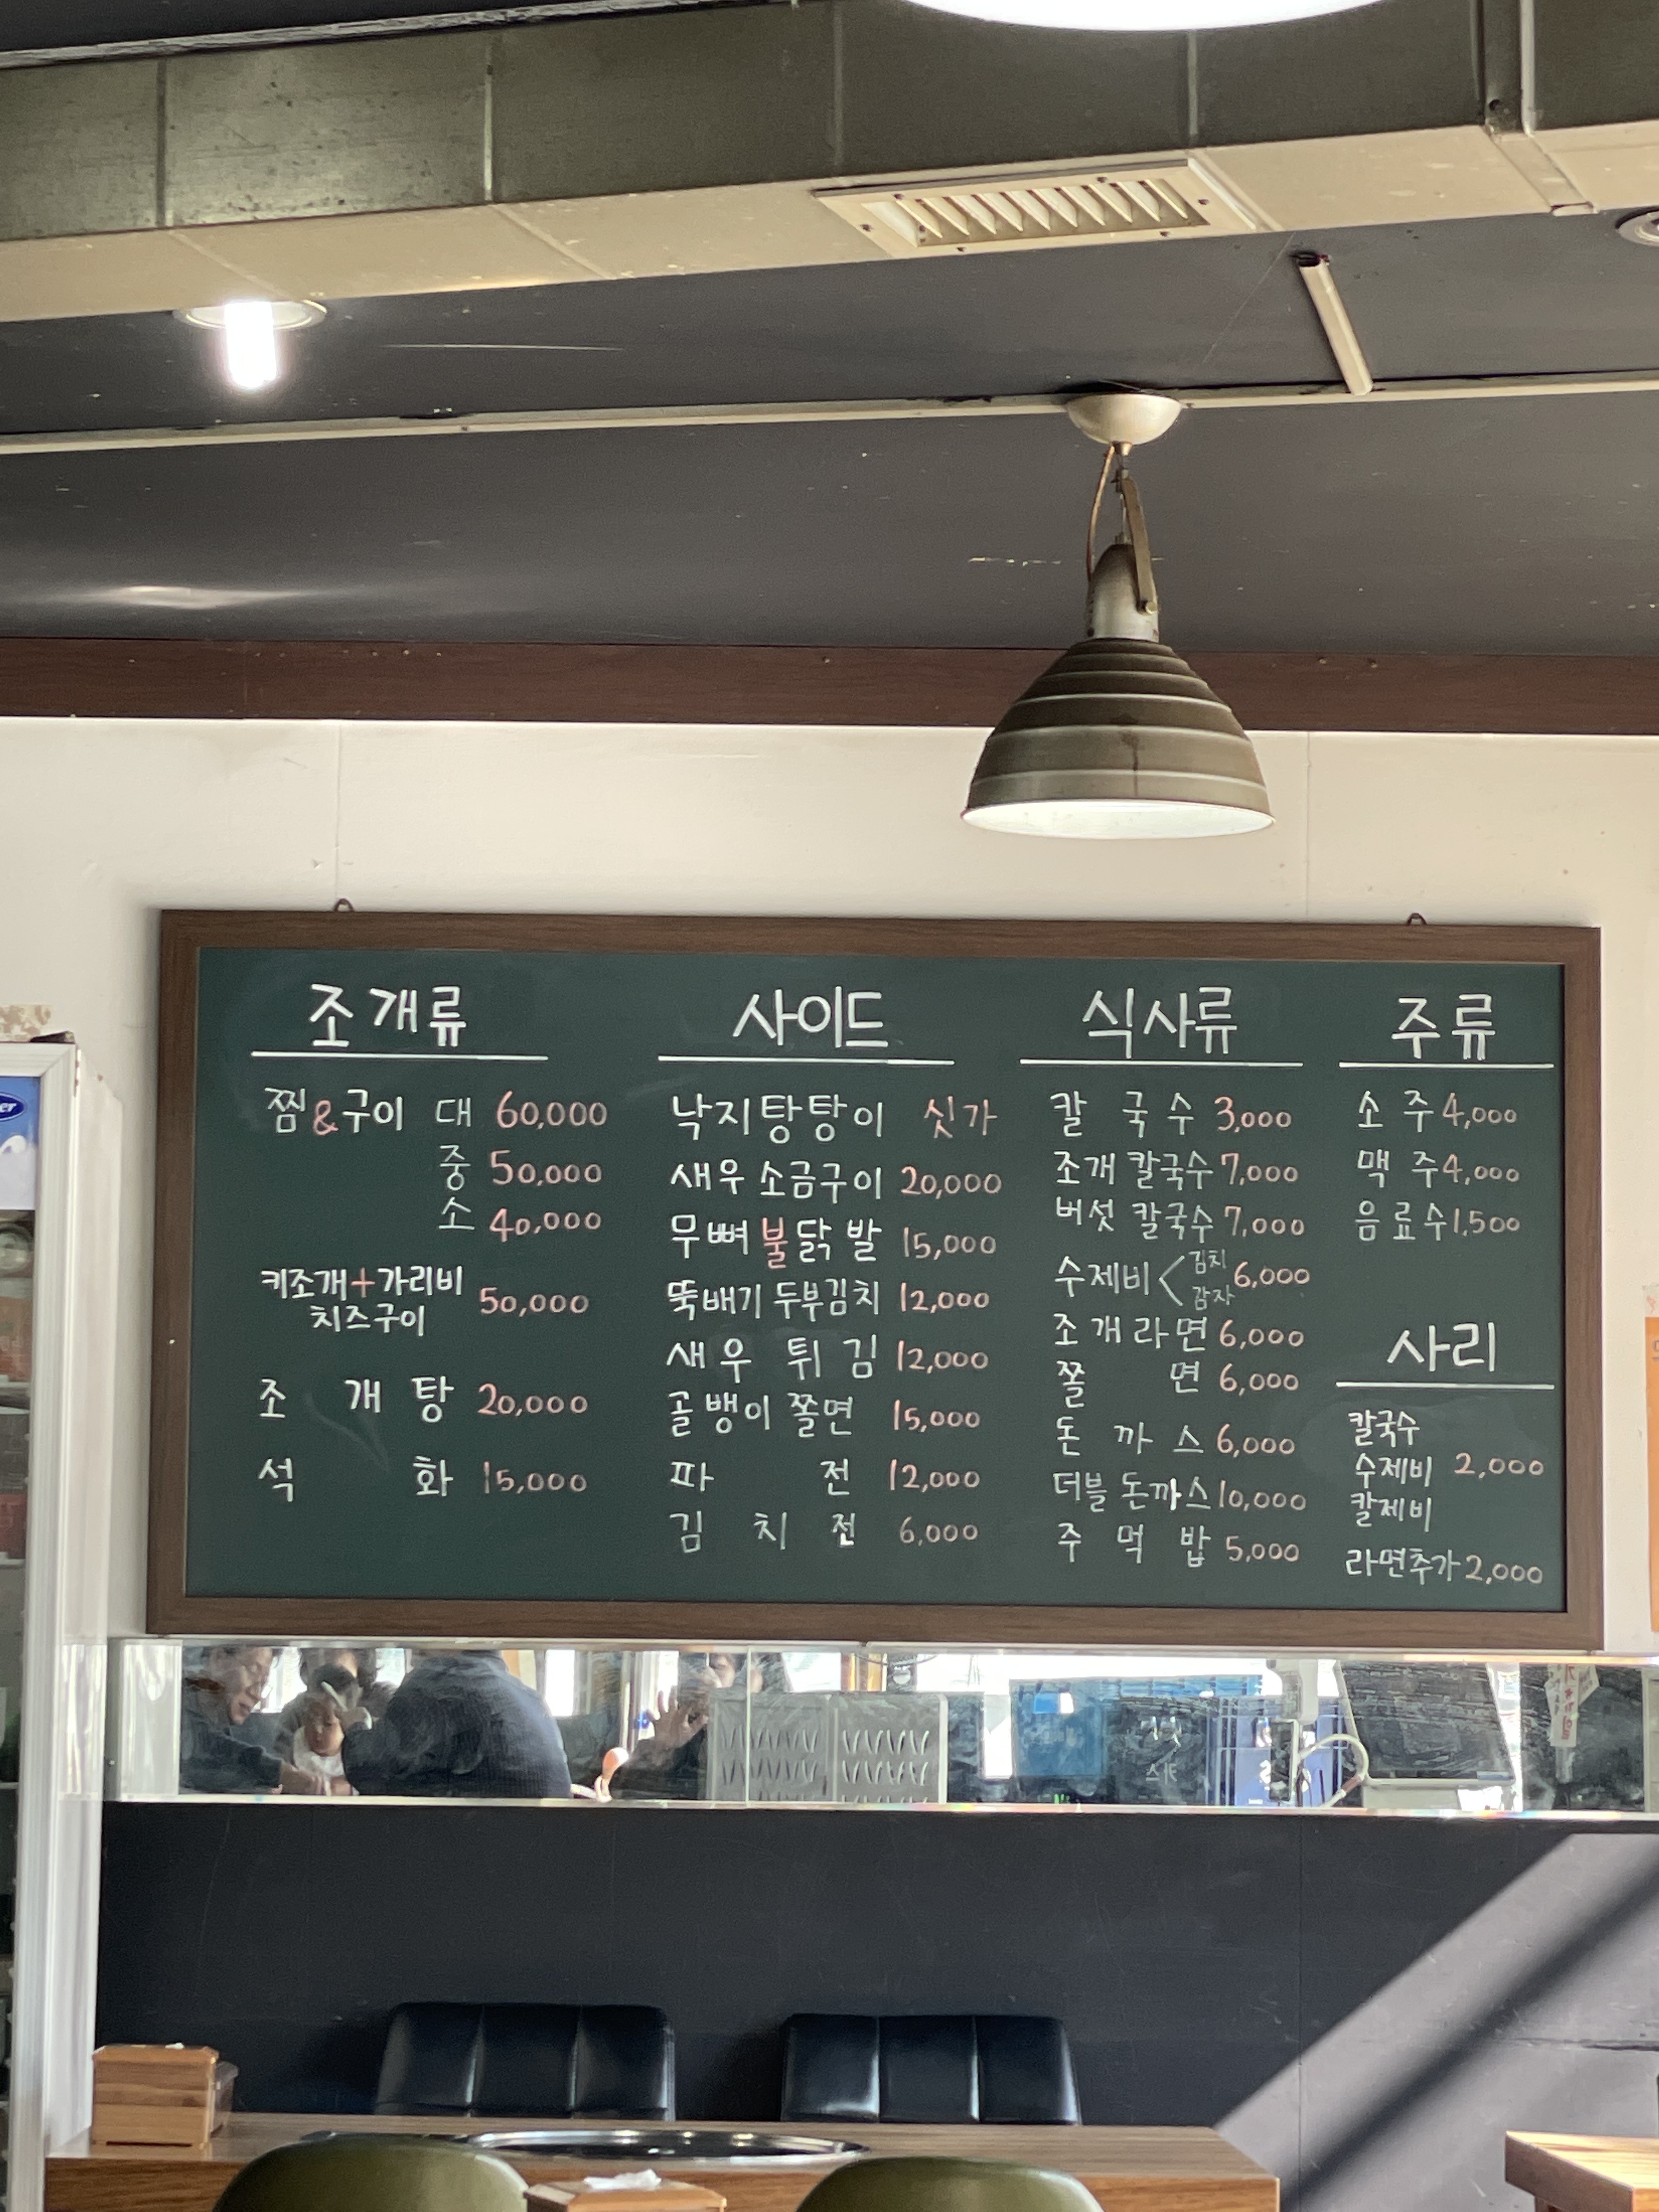 조개류
찜&구이 대 60,000
중 50,000
소 40,000
키조개+가리비
치즈구이 50,000
조개탕 20,000
석화 15,000
사이드
낙지탕탕이 싯가
새우 소금구이 20,000
무뼈불닭발 15,000
뚝배기 두부김치 12,000
새우튀김 12,000
골뱅이 쫄면 15,000
파전 12,000
김치전 6,000
식사류
칼국수 3,000
조개 칼국수 7,000
버섯 칼국수 7,000
수제비 < 김치 감자 6,000
조개라면 6,000
쫄면 6,000
돈까스 6,000
더블 돈까스 10,000
주먹밥 5,000
주류
소주 4,000
맥주 4,000
음료수 1,500
사리
칼국수
수제비 2,000
칼제비
라면추가 2,000